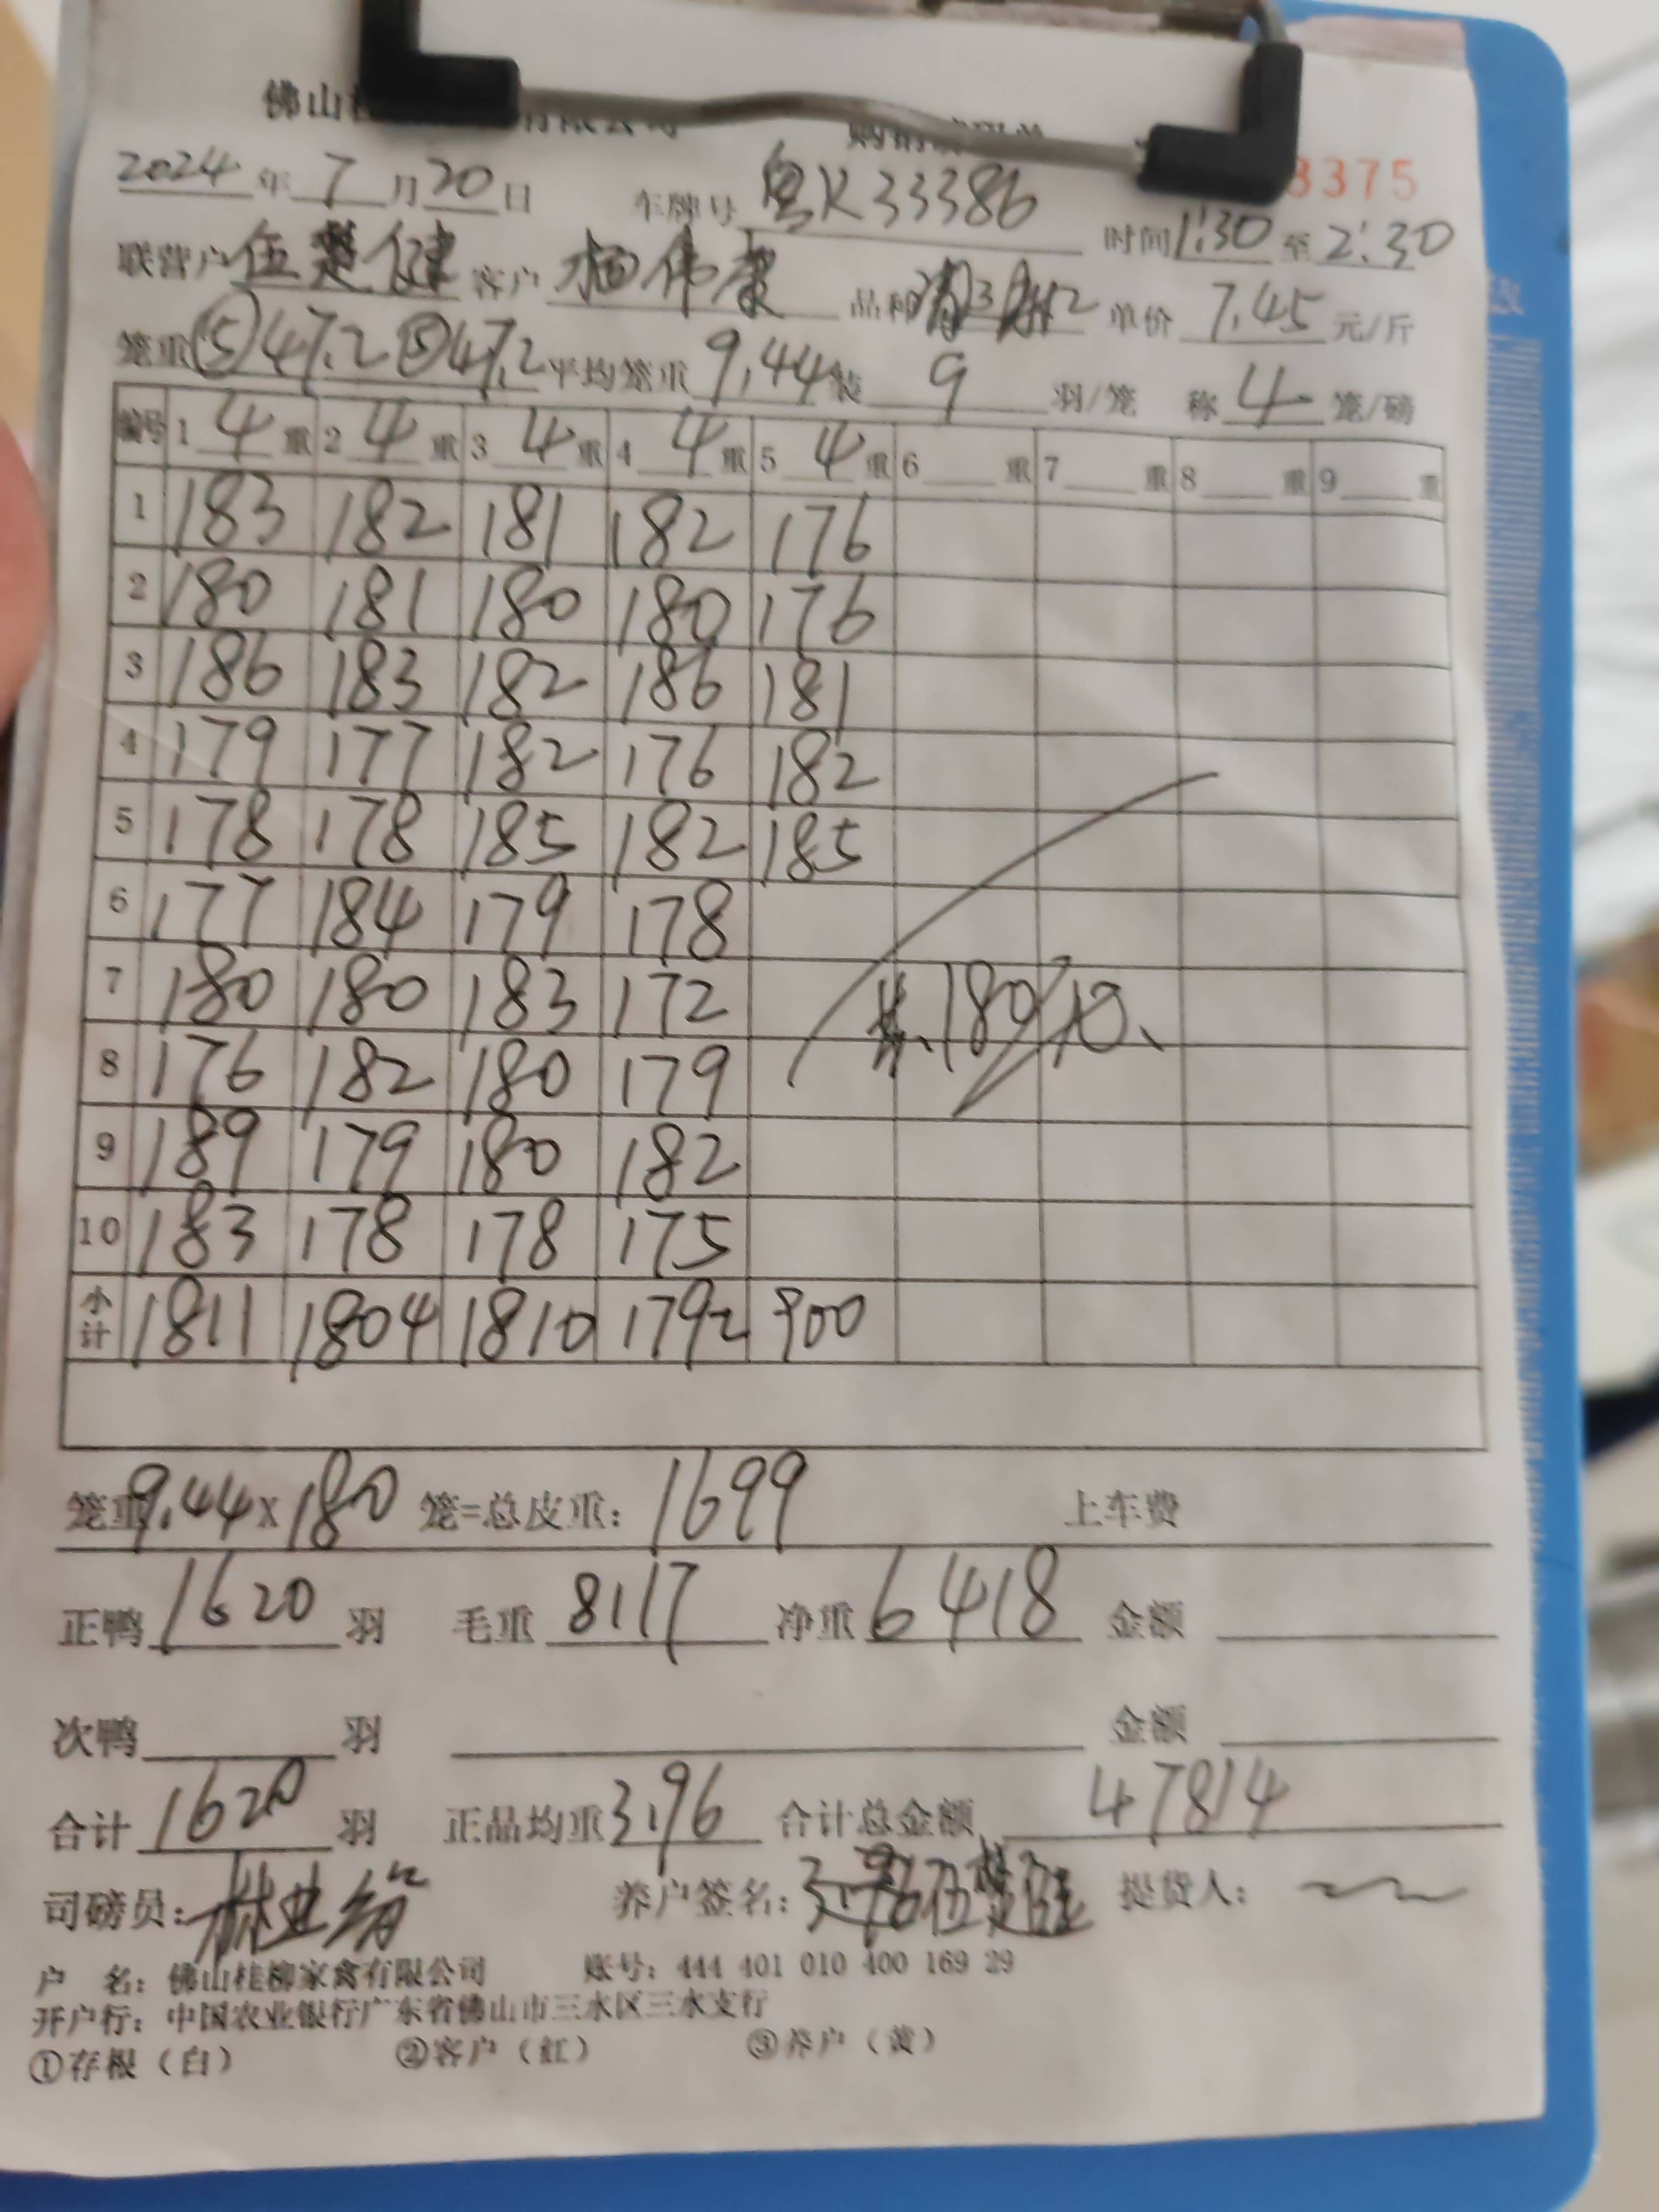 佛山
3375
2024年7月20日 车牌号 粤K33386 时间1:30至2:30
联营户 伍楚健 客户 伟康 品种 单价 7.45 元/斤
笼重⑤47.2 ⑤47.2 平均笼重 9.44 装 9 羽/笼 称 4 笼/磅
编号 1 4 重 2 4 重 3 4 重 4 4 重 5 4 重 6 重 7 重 8 重 9 重
1 183 182 181 182 176
2 180 181 180 180 176
3 186 183 182 186 181
4 179 177 182 176 182
5 178 178 185 182 185
6 177 184 179 178
7 180 180 183 172 180
8 176 182 180 179
9 189 179 180 182
10 183 178 178 175
小计 1811 1804 1810 1792 900
笼重9.44×180 笼=总皮重: 1699 上车费
正鸭 1620 羽 毛重 8117 净重 6418 金额
次鸭 羽 金额
合计 1620 羽 正品均重 3.96 合计总金额 47814
司磅员: 林业 养户签名: 伍楚健 提货人:
户 名: 佛山桂柳家禽有限公司 账号: 444 401 010 400 169 29
开户行: 中国农业银行广东省佛山市三水区三水支行
①存根（白） ②客户（红） ③养户（黄）